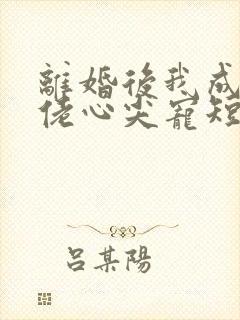 離婚後我成
佬心尖寵短
吕某陽